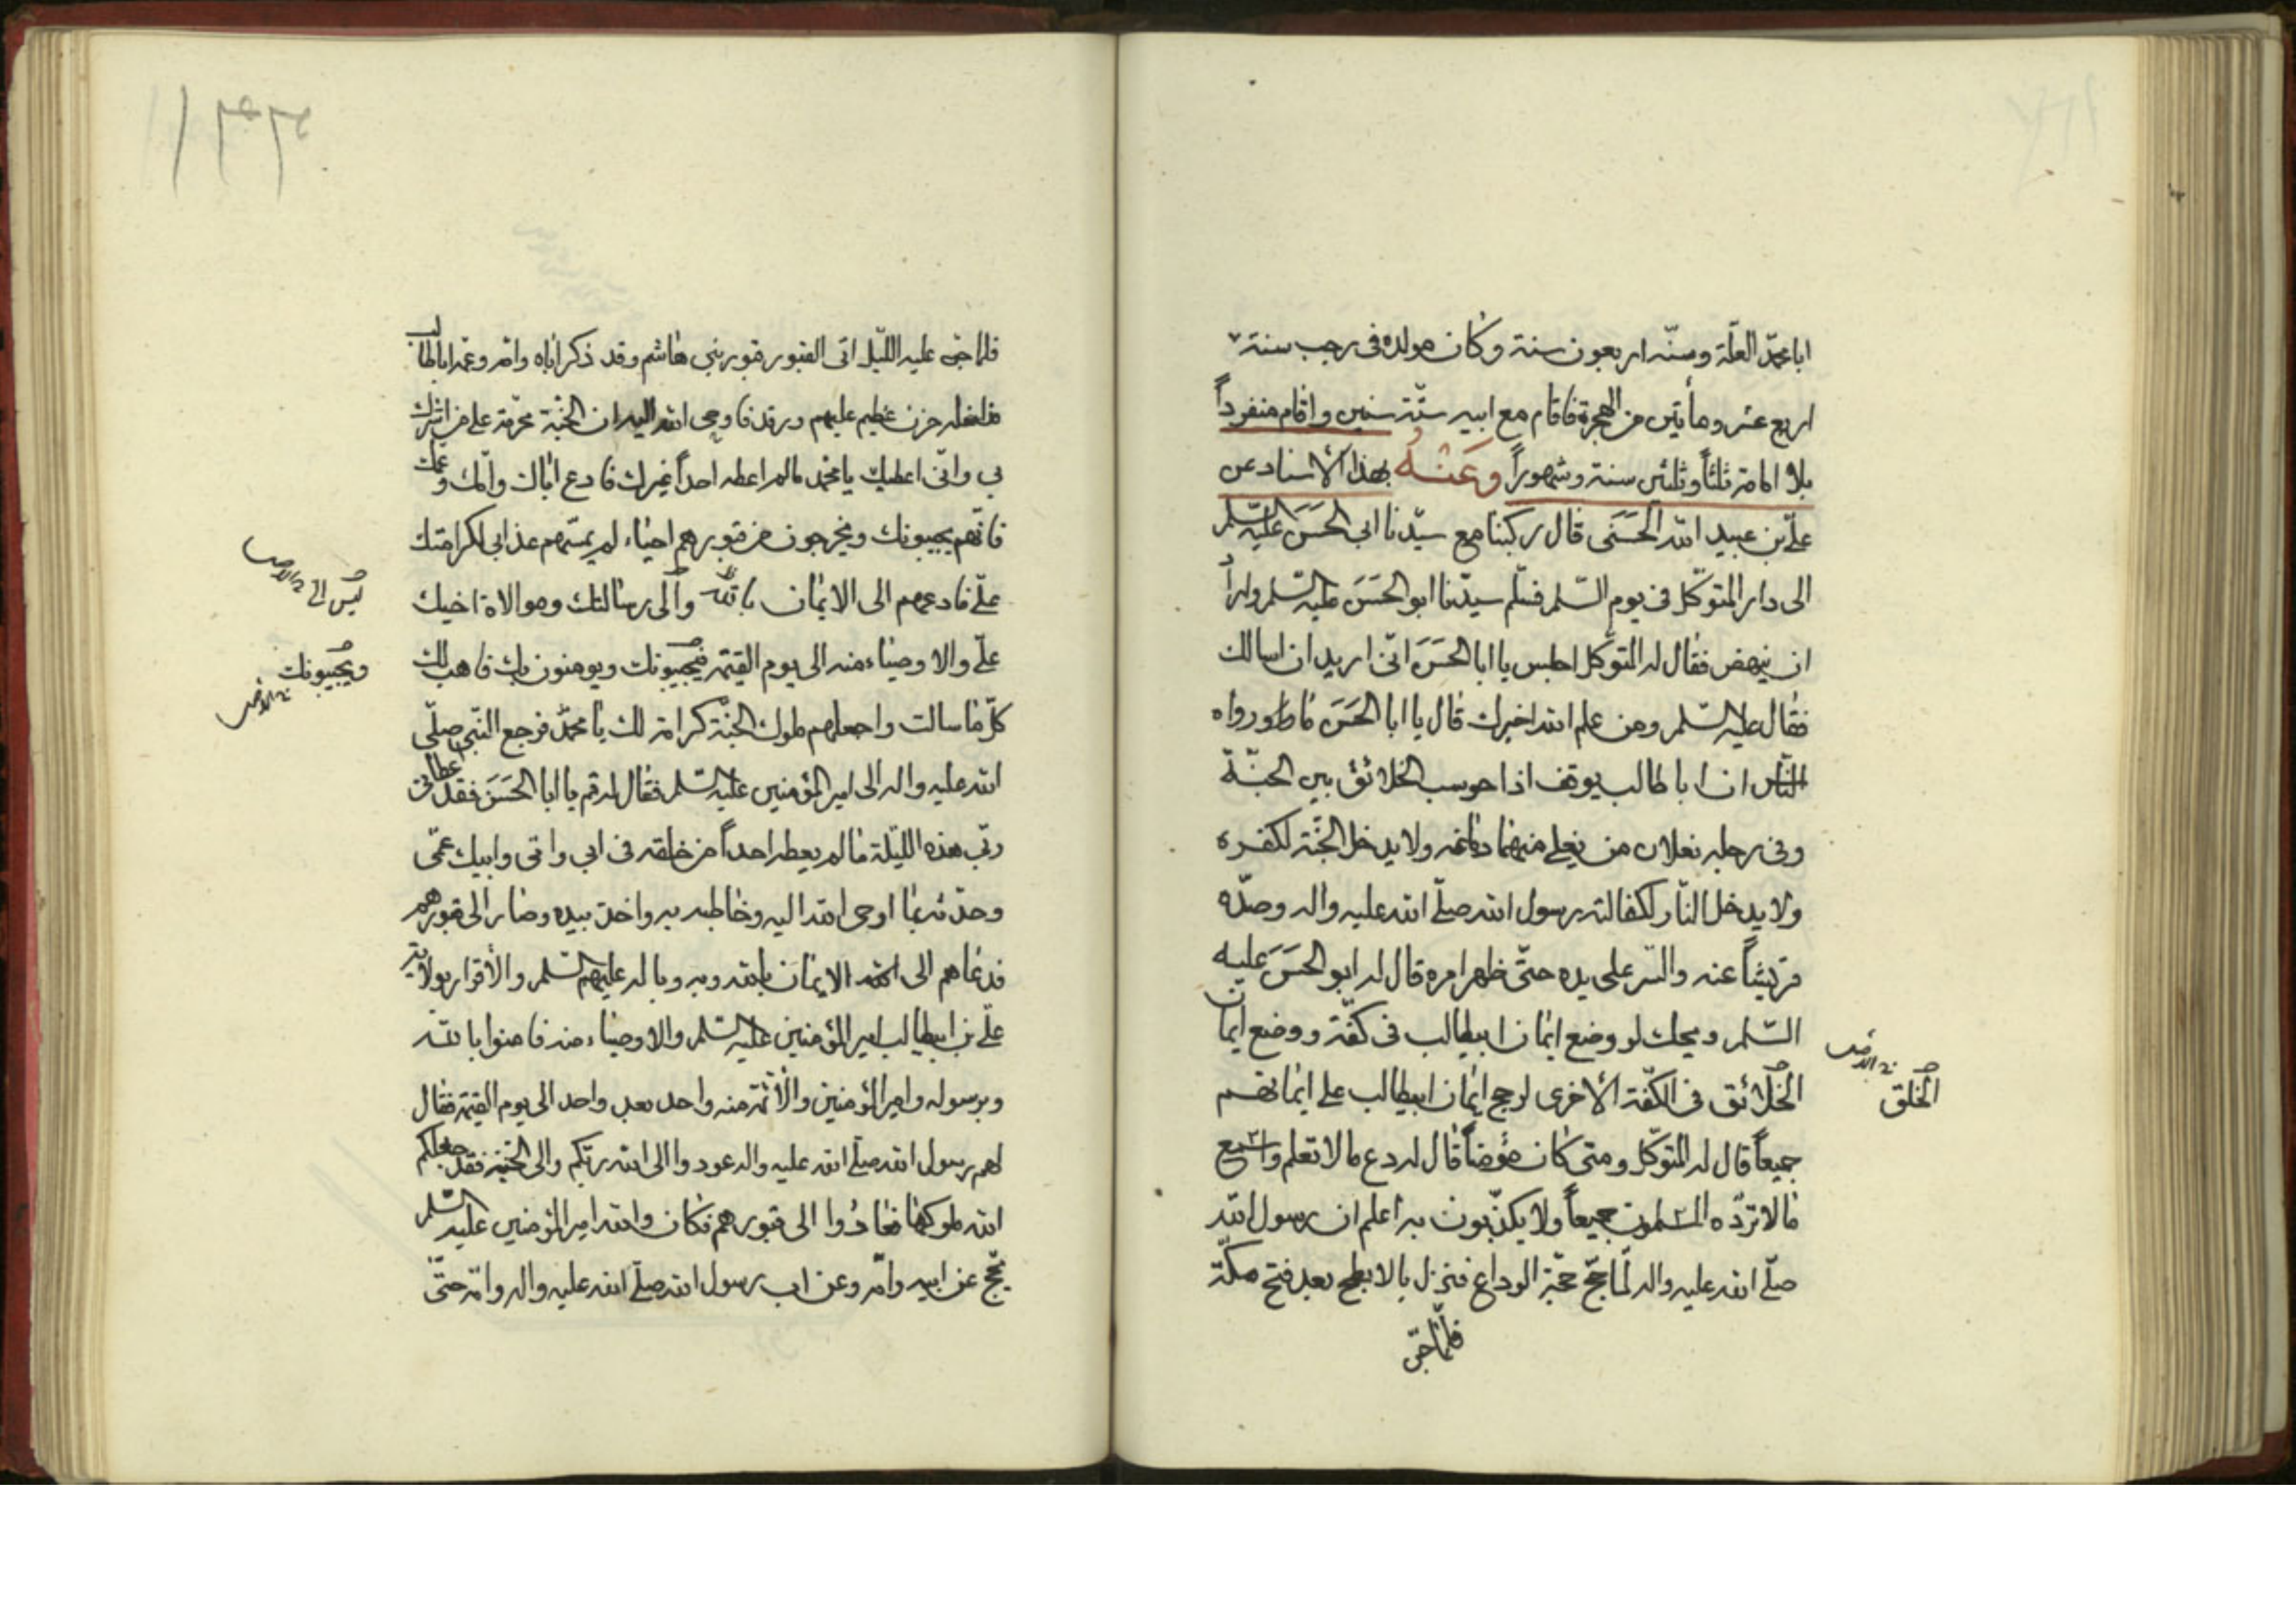 ابا محمد العلة وسنّه اربعون سنة وكان مولده في رجب سنة
اربع عشر ومأتين من الهجرة فاقام مع ابيه ستّة سنين واقام منفرداً
بالامامة ثلثاً وثلثين سنة وشهوراً وَعَنْهُ بهذا الاسناد عن
علي بن عبيد الله الحَسَني قال ركبنا مع سيّدنا ابي الحَسَن عليه السّلم
الى دار المتوكّل في يوم السّلم فسلّم سيدّنا ابو الحَسَن عليه السّلم واراد
ان ينهض فقال له المتوكّل اجلس يا ابا الحَسَن انّى اريد ان اسالك
فقال عليه السّلم ومن علم الله اخبرك قال يا ابا الحَسَن ما رواه
النّاس ان ابا طالب يوقف اذا حوسب الخلائق بين الجنّة
وفى رجليه نعلان من يغلى منهما دماغه ولا يدخل الجنّة لكفره
ولا يدخل النّار لكفالته رسول الله صلّى الله عليه واله وصدّه
قريشاً عنه والسّر على يده حتّى ظهر امره قال له ابو الحَسَن عليه
السّلم ويحك لو وضع ايمان ابيطالب فى كفّة ووضع ايمان
الخلائق فى الكفّة الأخرى لرجح ايمان ابيطالب على ايمانهم
الخلق
جميعاً قال له المتوكّل ومتى كان مؤمناً قال له دع ما لا تعلم واسمع
ما لا تردّه المسلمون جميعاً ولا يكذّبون به أعلم ان رسول الله
صلّى الله عليه واله لمّا حجّ حجّة الوداع فنزل بالابطح بعد فتح مكّة
فلمّا جنّ
فلما جنّ عليه اللّيل اتى القبور قبور بني هاشم وقد ذكر اباه وامّه وعمّه اباطالب
فداخله حزن عظيم عليهم ورقة فاوحى الله اليه ان الجنّة محرّمة على من اشرك
بي وانّى اعطيك يا محمّد ما لم اعطه احداً غيرك فادع اباك وامّك وعمّك
فانّهم يجيبونك ويخرجون من قبورهم احياء لم يمسّهم عذابي لكرامتك
علىّ فادعهم الى الايمان بالله والى رسالتك وموالاة اخيك
علىّ والاوصياء منه الى يوم القيمة فيجيبونك ويومنون بك فاهب لك
ويجيبونك
كلّ ما سالت واجعلهم ملوك الجنّة كرامة لك يا محمّد فرجع النّبي صلّى
الله عليه واله الى امير المؤمنين عليه السّلم فقال له قم يا ابا الحَسَن فقد اعطانى
ربّى هذه اللّيلة ما لم يعطه احداً من خلقه فى ابى وامّى وابيك عمّى
وحدّثه بما اوحى الله اليه وخاطبه به واخذ بيده وصار الى قبورهم
فدعاهم الى الايمان بالله وبه وباله عليهم السّلم والأقرار بولاية
علىّ بن ابيطالب امير المؤمنين عليه السّلم والاوصياء منه فامنوا بالله
وبرسوله وامير المؤمنين والأئمّة منه واحد بعد واحد الى يوم القيمة فقال
لهم رسول الله صلّى الله عليه واله عودوا الى الله ربّكم والى الجنّة فقد جعلكم
الله ملوكها فعادُوا الى قبورهم فكان والله امير المؤمنين عليه السّلم
يحجّ عن ابيه وامّه وعن اب رسول الله صلّى الله عليه واله وامّه حتّى